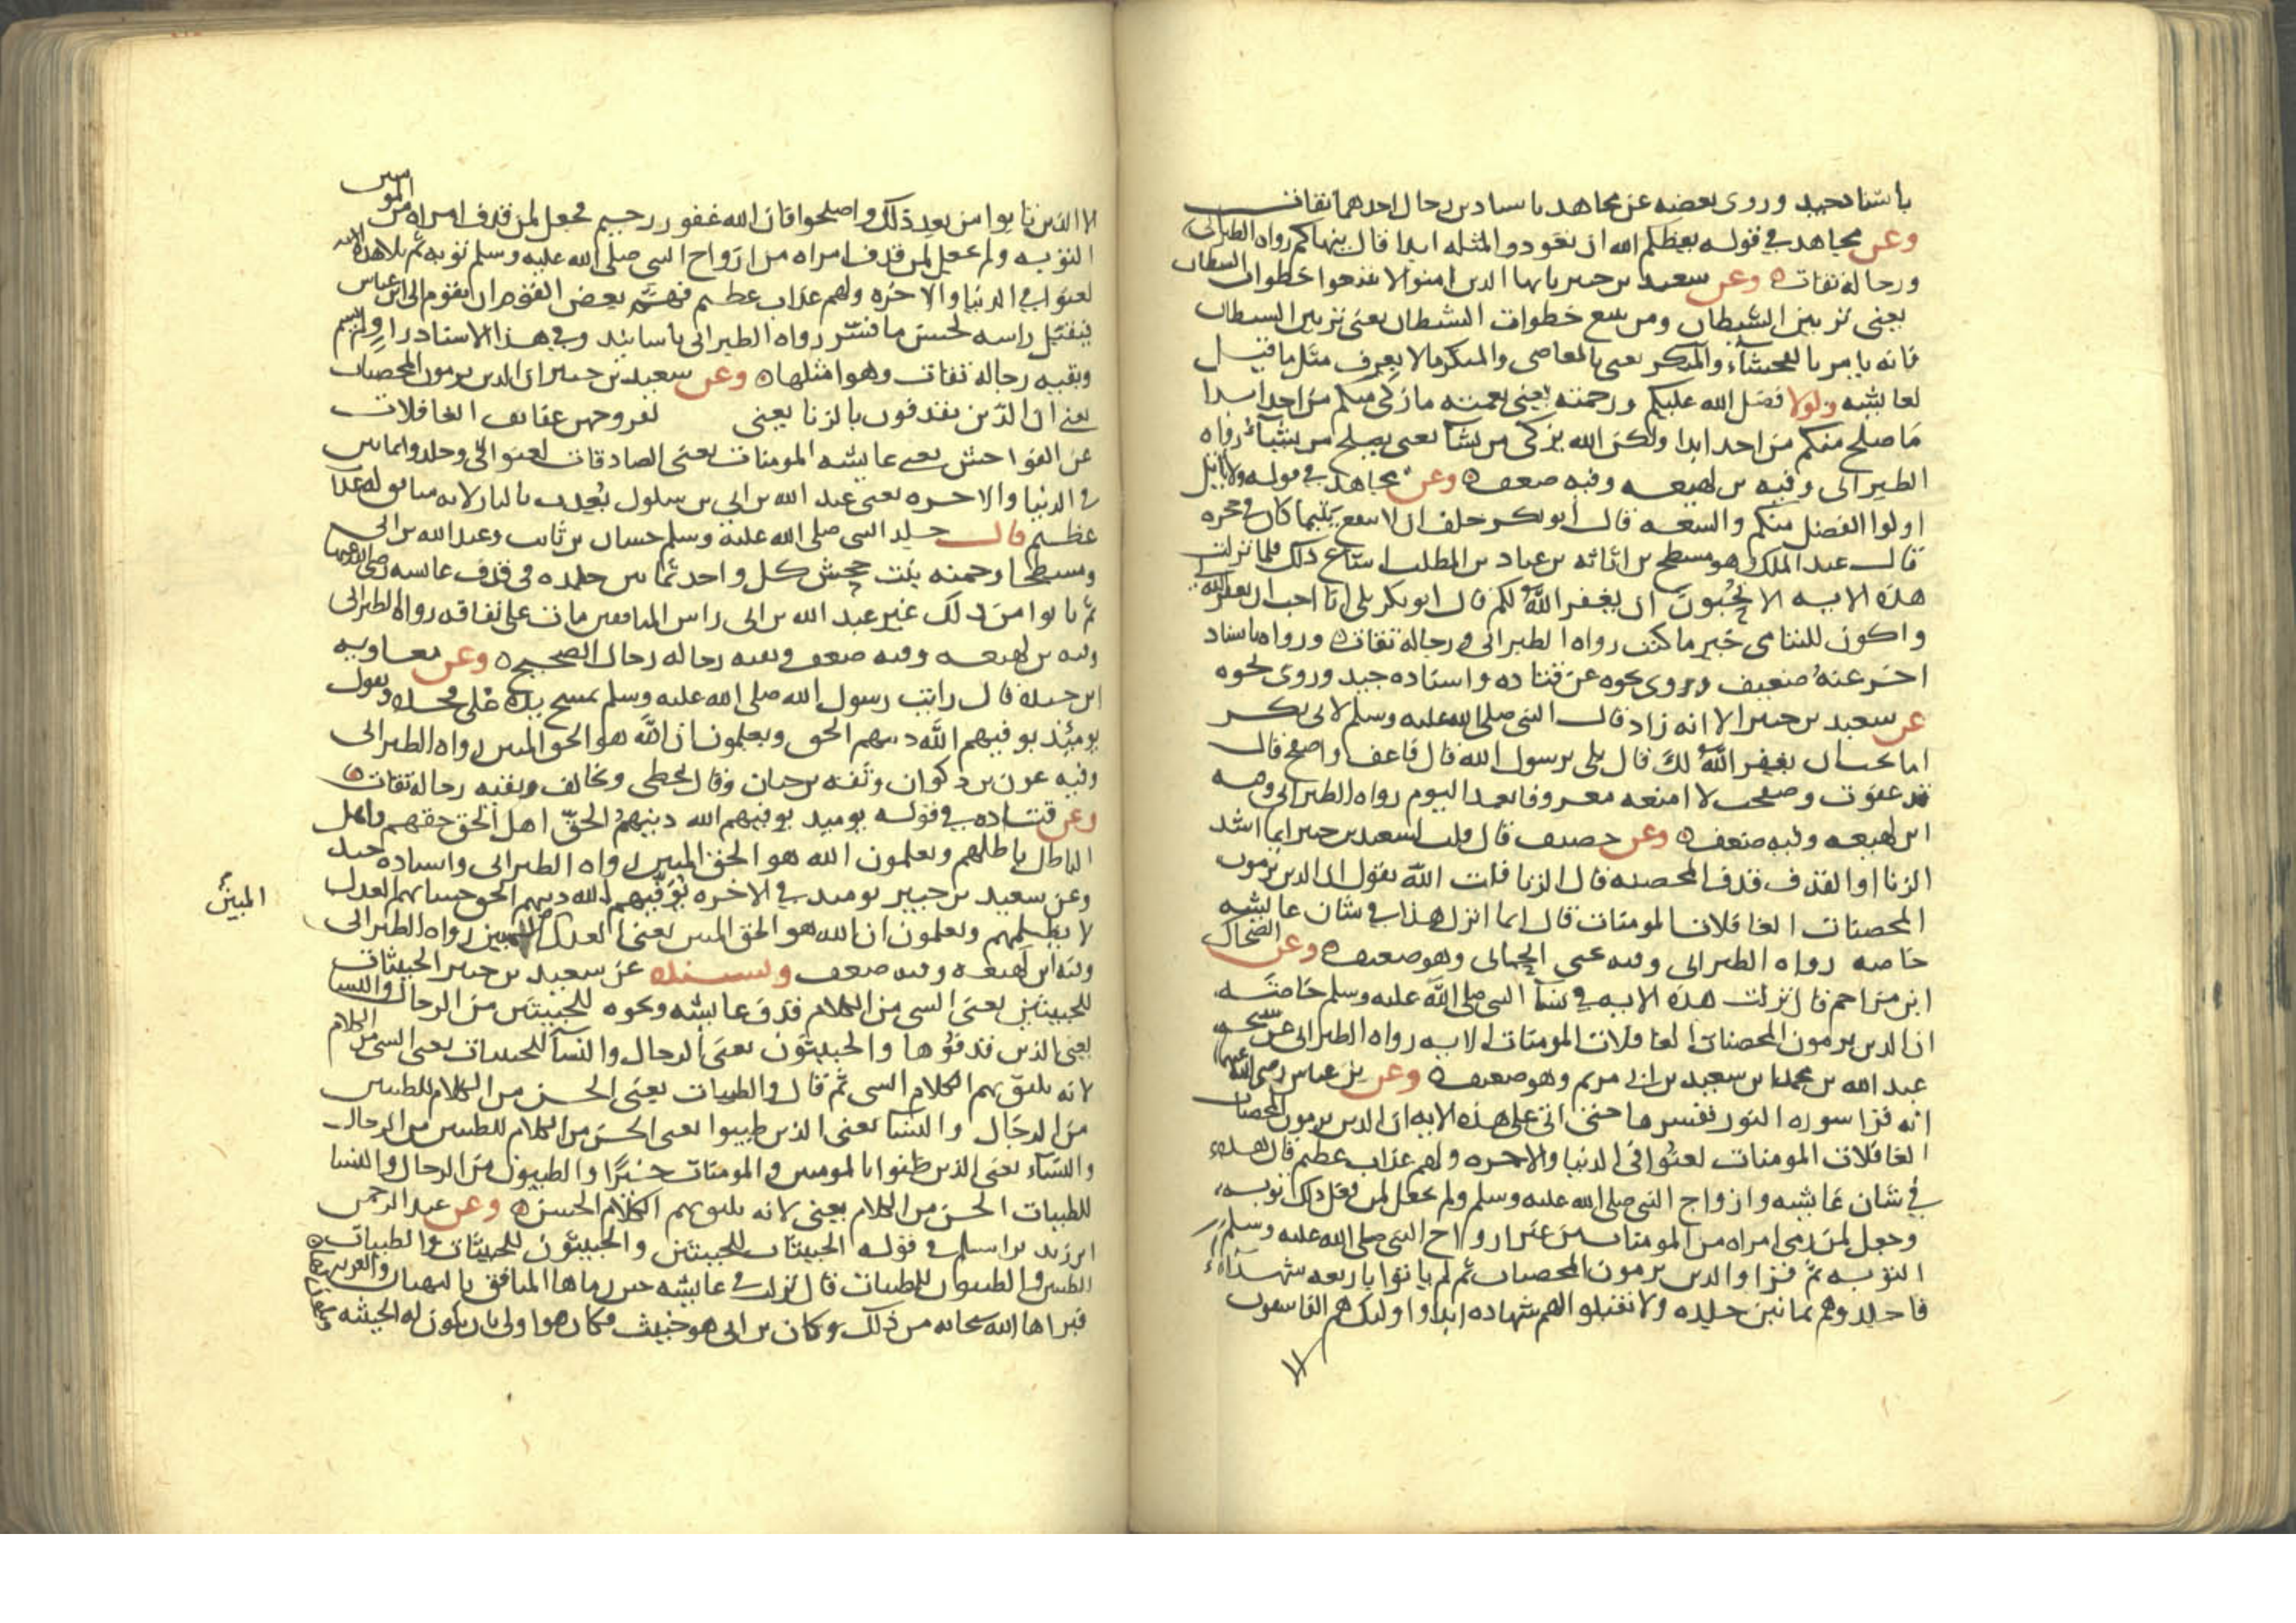 باسناد جيد وروى بعضه عن مجاهد باسنادين رجال احدهما ثقات
وعن مجاهد في قوله يعظكم الله ان تعودوا لمثله ابدا قال ينهاكم رواه الطبراني
ورجاله ثقات وعن سعيد بن جبير يايها الذين امنوا لا تتبعوا خطوات الشيطان
يعني تزيين الشيطان ومن يتبع خطوات الشيطان يعني تزيين الشيطان
فانه يامر بالفحشآء والمنكر يعني بالمعاصي والمنكر ما لا يعرف مثل ما قيل
لعايشه ولولا فضل الله عليكم ورحمته يعني نعمته ما زكى منكم من احد ابدا
ما صلح منكم من احد ابدا ولكن الله يزكي من يشآ يعني يصلح من يشآء رواه
الطبراني وفيه بن لهيعه وفيه ضعف وعن مجاهد في قوله ولا ياتل
اولوا الفضل منكم والسعه قال ابو بكر حلف ان لا ينفع يتيما كان في حجره
قال عبد الملك هو مسطح بن اثاثه بن عباد بن المطلب ذلك فلما نزلت
هذه الايه الا تحبون ان يغفر الله لكم قال ابو بكر بلى انا احب ان يغفر الله لي
واكون لليتامى خير ما كنت رواه الطبراني ورجاله ثقات ورواه باسناد
اخر عنه ضعيف وروى نحوه عن قتاده واسناده جيد وروى نحوه
عن سعيد بن جبير الا انه زاد قال النبي صلى الله عليه وسلم لابي بكر
اما تحب ان يغفر الله لك قال بلى يرسول الله قال فاعف واصفح قال
قد عفوت وصفحت لا امنعه معروفا بعد اليوم رواه الطبراني وفيه
ابن لهيعه وفيه ضعف وعن خصيف قال قلت لسعيد بن جبير ايما اشد
الزنا او القذف قذف المحصنه قال الزنا قلت الله يقول ان الذين يرمون
المحصنات الغافلات المومنات قال انما انزل هذا في شان عايشه
خاصه رواه الطبراني وفيه يحيى الحماني وهو ضعيف وعن الضحاك
ابن مزاحم قال نزلت هذه الايه في نسآ النبي صلى الله عليه وسلم خاصة
ان الذين يرمون المحصنات الغافلات المومنات الايه رواه الطبراني عن شيخه
عبد الله بن محمد بن سعيد بن ابي مريم وهو ضعيف وعن بن عباس رضي الله عنهما
انه قرا سوره النور ففسرها حتى اتى على هذه الايه ان الذين يرمون المحصنات
الغافلات المومنات لعنوا في الدنيا والاخره ولهم عذاب عظيم قال هذه
في شان عايشه وازواج النبي صلى الله عليه وسلم ولم يجعل لمن فعل ذلك توبه
وجعل لمن رمى امراه من المومنات من غير ازواج النبي صلى الله عليه وسلم
التوبه ثم قرا والذين يرمون المحصنات ثم لم ياتوا باربعه شهدآء
فاجلدوهم ثمانين جلده ولا تقبلوا لهم شهاده ابدا واوليك هم الفاسقون
الا
الا الذين تابوا من بعد ذلك واصلحوا فان الله غفور رحيم فجعل لمن قذف امراه من المومنين
التوبه ولم يجعل لمن قذف امراه من ازواج النبي صلى الله عليه وسلم توبه ثم تلا هذه الايه
لعنوا في الدنيا والاخره ولهم عذاب عظيم فهم بعض القوم ان يقوم الى ابن عباس
فيقبل راسه لحسن ما فسر رواه الطبراني باسانيد وفي هذا الاسناد راو لم يسم
وبقيه رجاله ثقات وهو امثلها وعن سعيد بن جبير ان الذين يرمون المحصنات
يعني ان الذين يقذفون بالزنا يعني لفروجهن عفايف الغافلات
عن الفواحش يعني عايشه المومنات يعني الصادقات لعنوا
في الدنيا والاخره يعني عبد الله بن ابي بن سلول يعذب بالنار لانه منافق له عذاب
عظيم قال جلد النبي صلى الله عليه وسلم حسان بن ثابت وعبد الله بن ابي
ومسطحا وحمنه بنت جحش كل واحد ثمانين جلده في قذف عايشه رضي الله عنها
ثم تابوا من ذلك غير عبد الله بن ابي راس المنافقين مات على نفاقه رواه الطبراني
وفيه بن لهيعه وفيه ضعف وبقيه رجاله رجال الصحيح وعن معاويه
ابن حيده قال رايت رسول الله صلى الله عليه وسلم يمسح بيده على فخذه ويقول
يوميذ يوفيهم الله دينهم الحق ويعلمون ان الله هو الحق المبين رواه الطبراني
وفيه عون بن ذكوان وثقه بن حبان وقال يخطي ويخالف وبقيه رجاله ثقات
وعن قتاده في قوله يوميذ يوفيهم الله دينهم الحق اهل الحق حقهم واهل
الباطل باطلهم ويعلمون الله هو الحق المبين رواه الطبراني واسناده جيد
وعن سعيد بن جبير يوميذ في الاخره يوفيهم الله دينهم الحق حسابهم العدل
لا يظلمهم ويعلمون ان الله هو الحق المبين يعني العدل المبين رواه الطبراني
المبين
وفيه ابن لهيعه وفيه ضعف وبسنده عن سعيد بن جبير الخبيثات
للخبيثين يعني السي من الكلام قذف عايشه ونحوه للخبيثين من الرجال والنسا
يعني الذين قذفوها والخبيثون يعني الرجال والنسآ للخبيثات يعني السي من الكلام
لانه يليق بهم الكلام السي ثم قال والطيبات يعني الحسن من الكلام للطيبين
من الرجال والنسا يعني الذين طيبوا يعني الحسن من الكلام للطيبين من الرجال
والنسآء يعني الذين ظنوا بالمومنين والمومنات خيرا والطيبون من الرجال والنسا
للطيبات الحسن من الكلام يعني لانه يليق بهم الكلام الحسن وعن عبد الرحمن
ابن زيد بن اسلم في قوله الخبيثات للخبيثين والخبيثون للخبيثات والطيبات
للطيبين والطيبون للطيبات قال نزلت في عايشه حين رماها المنافق بالبهتان والفريه
فبراها الله سبحانه من ذلك وكان بن ابي هو خبيث فكان هو اولى بان يكون له الخبيثه